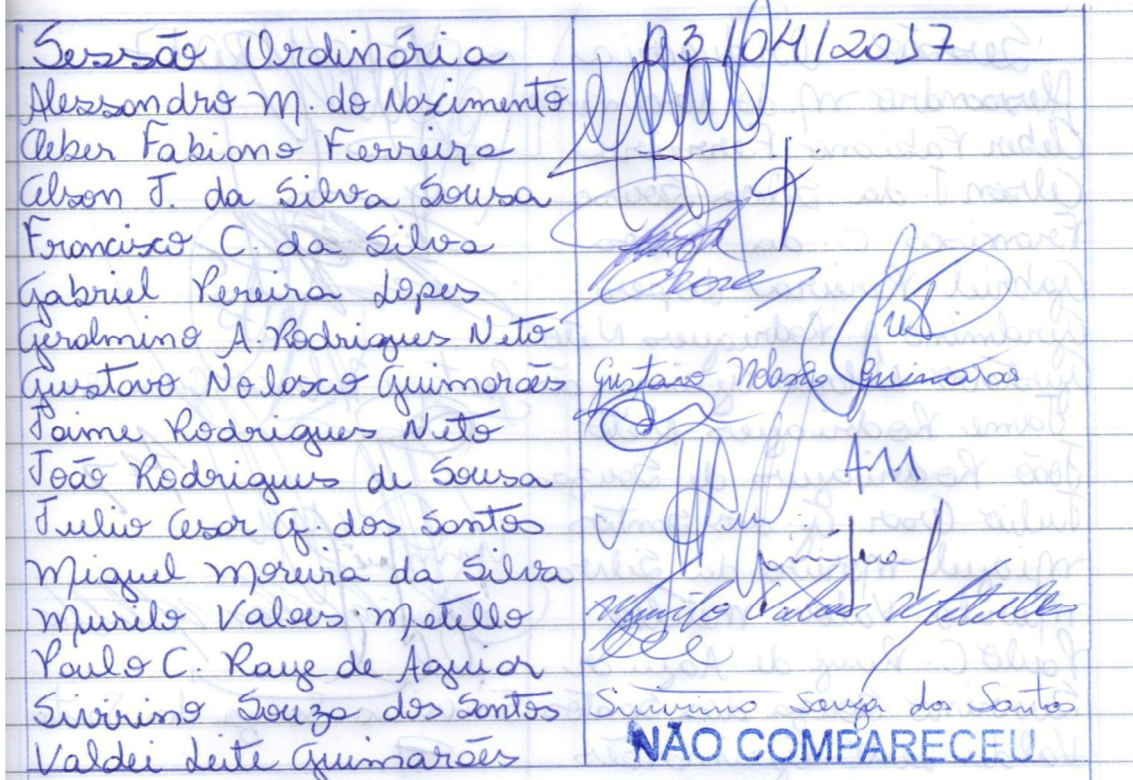 Sessão Ordinária 03/04/2017
Alessandro M. do Nascimento
Cleber Fabiano Ferreira
Celson J. da Silva Sousa
Francisco C. da Silva
Gabriel Pereira Lopes
Geralmino A. Rodrigues Neto
Gustavo Nolasco Guimarães Gustavo Nolasco Guimarães
Jaime Rodrigues Neto
João Rodrigues de Sousa
Julio Cesar G. dos Santos
Miguel Moreira da Silva
Murilo Valoes Metello Murilo Valoes Metello
Paulo C. Raye de Aguiar
Sivirino Souza dos Santos Sivirino Souza dos Santos
Valdei Leite Guimarães NÃO COMPARECEU